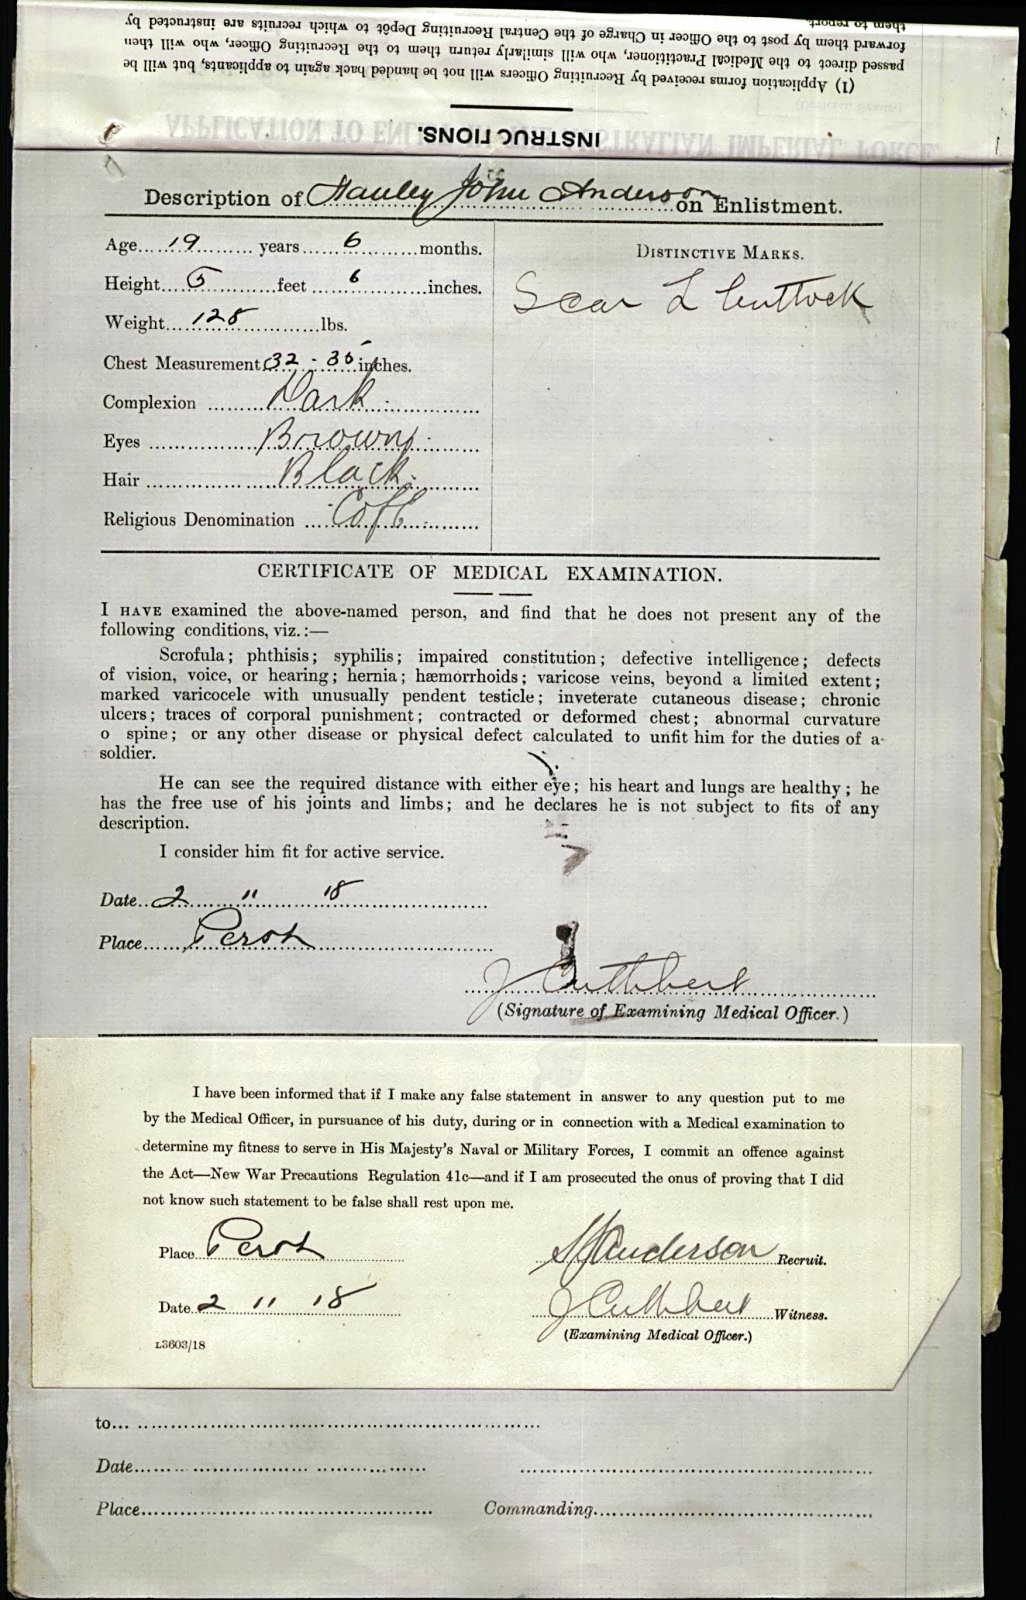 them to report.
forward them by post to the Officer in Charge of the Central Recruiting Depôt to which recruits are instructed by
passed direct to the Medical Practitioner, who will similarly return them to the Recruiting Officer, who will then
(1) Application forms received by Recruiting Officers will not be handed back again to applicants, but will be
INSTRUCTIONS.
Description of Stanley John Anderson on Enlistment.
Age 19 years 6 months.
Height 5 feet 6 inches.
Weight 128 lbs.
Chest Measurement 32 - 35 inches.
Complexion Dark
Eyes Brown
Hair Black
Religious Denomination CofE
DISTINCTIVE MARKS.
Scar L buttock
CERTIFICATE OF MEDICAL EXAMINATION.
I HAVE examined the above-named person, and find that he does not present any of the
following conditions, viz.:—
Scrofula; phthisis; syphilis; impaired constitution; defective intelligence; defects
of vision, voice, or hearing; hernia; hæmorrhoids; varicose veins, beyond a limited extent;
marked varicocele with unusually pendent testicle; inveterate cutaneous disease; chronic
ulcers; traces of corporal punishment; contracted or deformed chest; abnormal curvature
o spine; or any other disease or physical defect calculated to unfit him for the duties of a
soldier.
He can see the required distance with either eye; his heart and lungs are healthy; he
has the free use of his joints and limbs; and he declares he is not subject to fits of any
description.
I consider him fit for active service.
Date 2 " 18
Place Perth
J Cuthbert
(Signature of Examining Medical Officer.)
I have been informed that if I make any false statement in answer to any question put to me
by the Medical Officer, in pursuance of his duty, during or in connection with a Medical examination to
determine my fitness to serve in His Majesty's Naval or Military Forces, I commit an offence against
the Act—New War Precautions Regulation 41c—and if I am prosecuted the onus of proving that I did
not know such statement to be false shall rest upon me.
Place Perth
SJAnderson Recruit.
Date 2 11 18
J Cuthbert Witness.
(Examining Medical Officer.)
L3603/18
to
Date
Place
Commanding